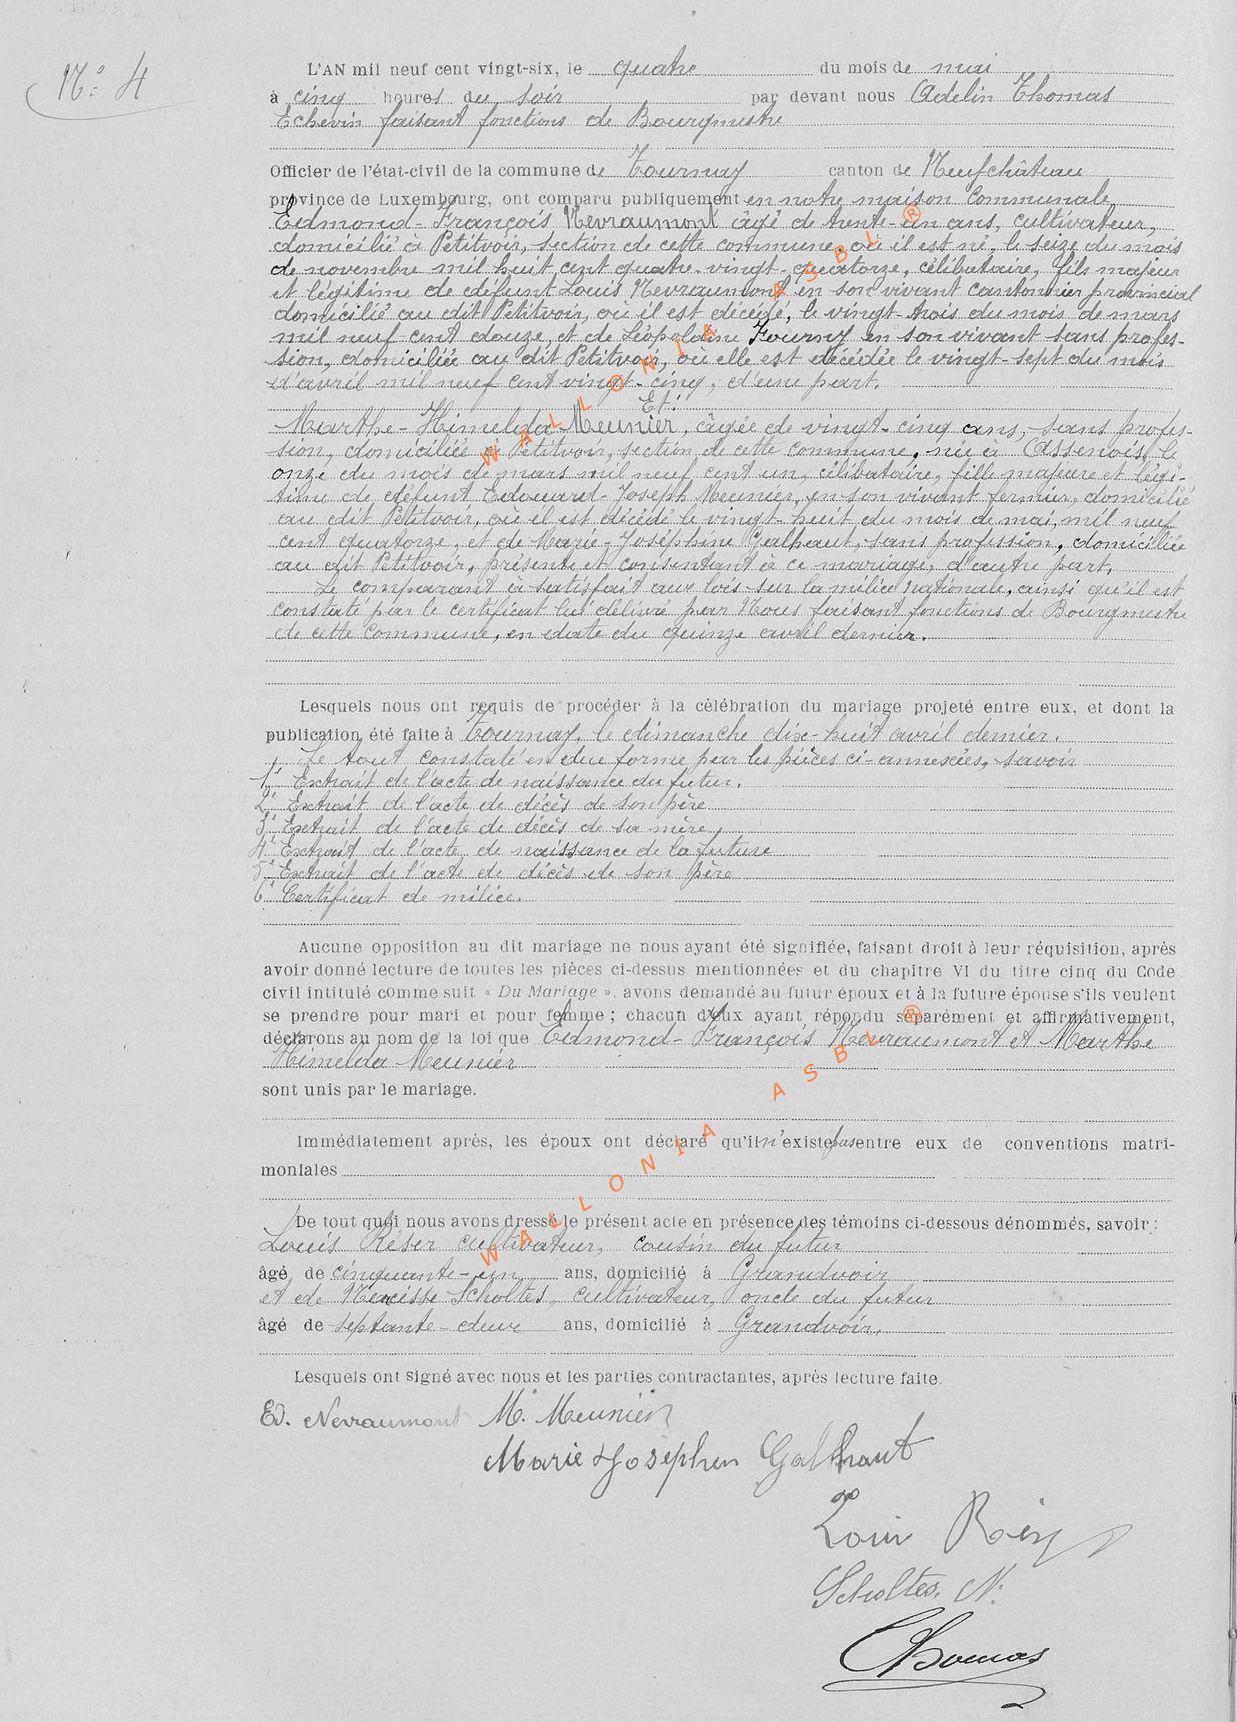 N° 4
L'AN mil neuf cent vingt-six, le quatre du mois de mai
à cinq heures du soir par devant nous Adelin Thomas
Echevin faisant fonctions de Bourgmestre
Officier de l'état-civil de la commune de Tournay canton de Neufchâteau
province de Luxembourg, ont comparu publiquement en notre maison communale
Edmond-François Nevraumont âgé de trente-un ans, cultivateur,
domicilié à Petitvoir, section de cette commune, où il est né, le seize du mois
de novembre mil huit cent quatre-vingt-quatorze, célibataire, fils majeur
et légitime de défunt Louis Nevraumont en son vivant cantonnier provincial
domicilié au dit Petitvoir, où il est décédé, le vingt-trois du mois de mars
mil neuf cent douze, et de Léopoldine Fourny en son vivant sans profes-
sion, domiciliée au dit Petitvoir, où elle est décédée le vingt-sept du mois
d'avril mil neuf cent vingt-cinq, d'une part,
Et:
Marthe-Himelda Meunier, âgée de vingt-cinq ans, sans profes-
sion, domiciliée à Petitvoir, section de cette commune, née à Assenois, le
onze du mois de mars mil neuf cent un, célibataire, fille majeure et légi-
time de défunt Edouard-Joseph Meunier, en son vivant fermier, domicilié
au dit Petitvoir, où il est décédé le vingt-huit du mois de mai, mil neuf
cent quatorze, et de Marie-Joséphine Galhaut, sans profession, domiciliée
au dit Petitvoir, présente et consentant à ce mariage, d'autre part,
Le comparant à satisfait aux lois sur la milice nationale, ainsi qu'il est
constaté par le certificat lui délivré par Nous faisant fonctions de Bourgmestre
de cette commune, en date du quinze avril dernier.
Lesquels nous ont requis de procéder à la célébration du mariage projeté entre eux, et dont la
publication été faite à Tournay, le dimanche dix-huit avril dernier.
Le tout constaté en due forme par les pièces ci-annexées, savoir
1° Extrait de l'acte de naissance du futur.
2° Extrait de l'acte de décès de son père
3° Extrait de l'acte de décès de sa mère,
4° Extrait de l'acte de naissance de la future
5° Extrait de l'acte de décès de son père
6° Certificat de milice.
Aucune opposition au dit mariage ne nous ayant été signifiée, faisant droit à leur réquisition, après
avoir donné lecture de toutes les pièces ci-dessus mentionnées et du chapitre VI du titre cinq du Code
civil intitulé comme suit « Du Mariage », avons demandé au futur époux et à la future épouse s'ils veulent
se prendre pour mari et pour femme ; chacun d'eux ayant répondu séparément et affirmativement,
déclarons au nom de la loi que Edmond-François Nevraumont et Marthe
Himelda Meunier
sont unis par le mariage.
Immédiatement après, les époux ont déclaré qu'il n'existe pas entre eux de conventions matri-
moniales
De tout quoi nous avons dressé le présent acte en présence des témoins ci-dessous dénommés, savoir :
Louis Réser cultivateur, cousin du futur
âgé de cinquante-un ans, domicilié à Grandvoir
et de Narcisse Scholtes, cultivateur, oncle du futur
âgé de septante-deux ans, domicilié à Grandvoir,
Lesquels ont signé avec nous et les parties contractantes, après lecture faite.
Ed. Nevraumont M. Meunier
Marie Josephin Galhaut
Louis
Scholtes. N.
Thomas
WALLONIA ASBL ®
WALLONIA ASBL ®